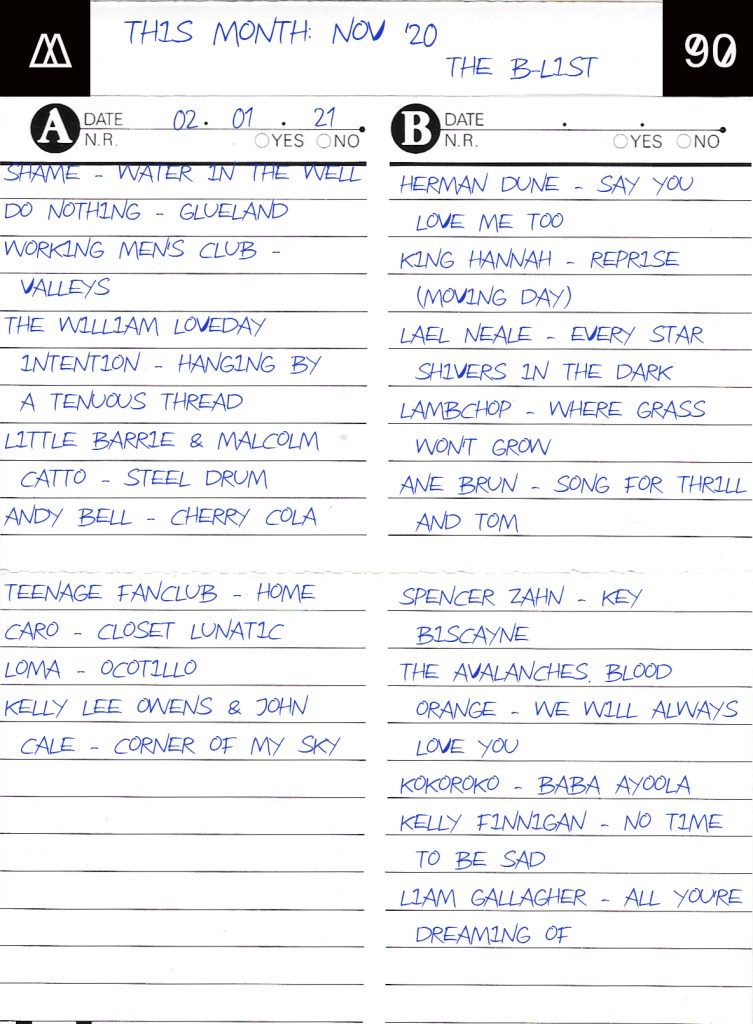 THIS MONTH: NOV '20
THE B-LIST
90
A DATE 02. 01. 21
N.R. YES NO
SHAME - WATER IN THE WELL
DO NOTHING - GLUELAND
WORKING MEN'S CLUB -
VALLEYS
THE WILLIAM LOVEDAY
INTENTION - HANGING BY
A TENUOUS THREAD
LITTLE BARRIE & MALCOLM
CATTO - STEEL DRUM
ANDY BELL - CHERRY COLA
TEENAGE FANCLUB - HOME
CARO - CLOSET LUNATIC
LOMA - OCOTILLO
KELLY LEE OWENS & JOHN
CALE - CORNER OF MY SKY
B DATE . .
N.R. YES NO
HERMAN DUNE - SAY YOU
LOVE ME TOO
KING HANNAH - REPRISE
(MOVING DAY)
LAEL NEALE - EVERY STAR
SHIVERS IN THE DARK
LAMBCHOP - WHERE GRASS
WON'T GROW
ANE BRUN - SONG FOR THRILL
AND TOM
SPENCER ZAHN - KEY
BISCAYNE
THE AVALANCHES, BLOOD
ORANGE - WE WILL ALWAYS
LOVE YOU
KOKOROKO - BABA AYOOLA
KELLY FINNIGAN - NO TIME
TO BE SAD
LIAM GALLAGHER - ALL YOU'RE
DREAMING OF